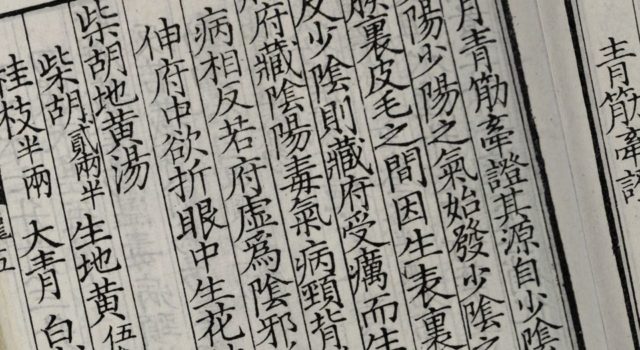 青筋牽
月青筋牽證其源自少陰
陽少陽之氣始發少陰之
裏皮毛之間因生表裏
少陰則藏府受癘而生
府藏陰陽毒氣病頸背
病相反若府虛爲陰邪
伸府中欲折眼中生花
柴胡地黃湯
柴胡貳兩半 生地黃伍
桂枝半兩 大青 白